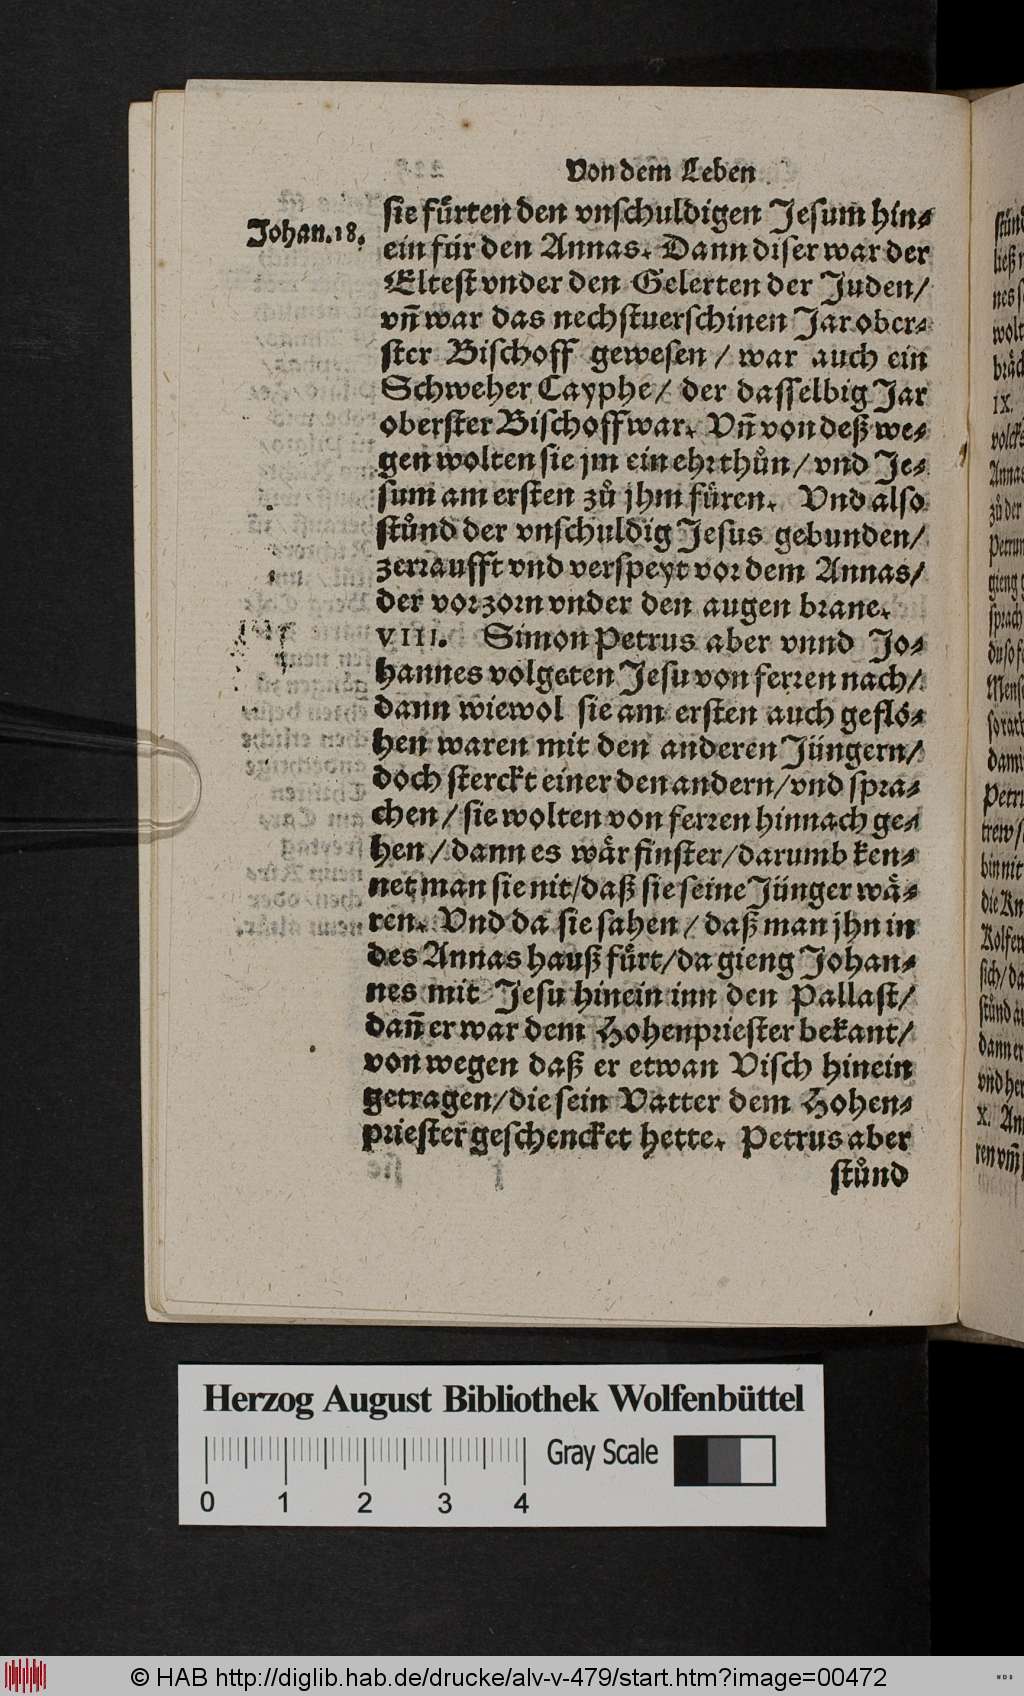 Von dem Leben
Johan.18.
sie fuͤrten den vnschuldigen Jesum hin⸗
ein für den Annas. Dann diser war der
Eltest vnder den Gelerten der Juden/
vñ war das nechstuerschinen Jar ober⸗
ster Bischoff gewesen / war auch ein
Schweher Cayphe/ der dasselbig Jar
oberster Bischoff war. Vñ von deß we⸗
gen wolten sie jm ein ehr thůn/ vnd Je⸗
sum am ersten zů jhm fuͤren. Vnd also
stůnd der vnschuldig Jesus gebunden/
zerraufft vnd verspeyt vor dem Annas/
der vor zorn vnder den augen brane.
VIII. Simon Petrus aber vnnd Jo⸗
hannes volgeten Jesu von ferren nach/
dann wiewol sie am ersten auch geflo⸗
hen waren mit den anderen Jüngern/
doch sterckt einer den andern/ vnd spra⸗
chen / sie wolten von ferren hinnach ge⸗
hen / dann es waͤr finster/ darumb ken⸗
net man sie nit/ daß sie seine Jünger waͤ⸗
ren. Vnd da sie sahen / daß man jhn in
des Annas hauß fuͤrt/ da gieng Johan⸗
nes mit Jesu hinein inn den Pallast/
dañ er war dem Hohenpriester bekant/
von wegen daß er etwan Visch hinein
getragen/ die sein Vatter dem Hohen⸗
priester geschencket hette. Petrus aber
stůnd
Herzog August Bibliothek Wolfenbüttel
Gray Scale
0 1 2 3 4
© HAB http://diglib.hab.de/drucke/alv-v-479/start.htm?image=00472